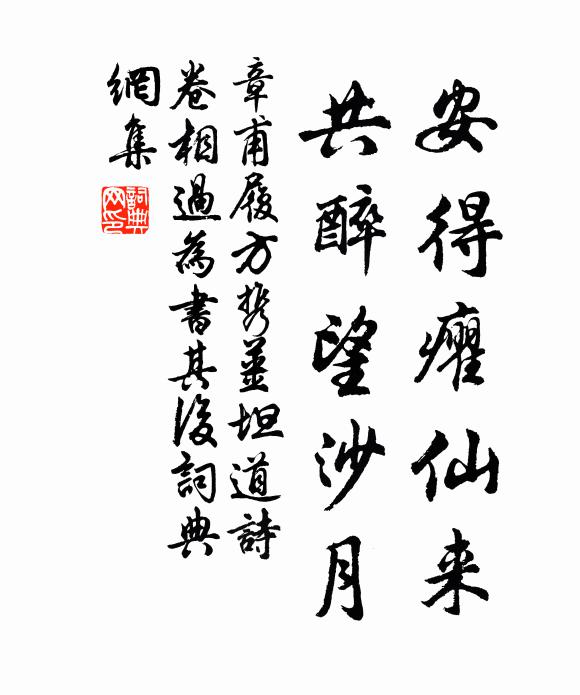 安得癯仙来
共醉望沙月
章甫履方携姜坦道詩
卷相過為書其後詞典
網集
詞典网印